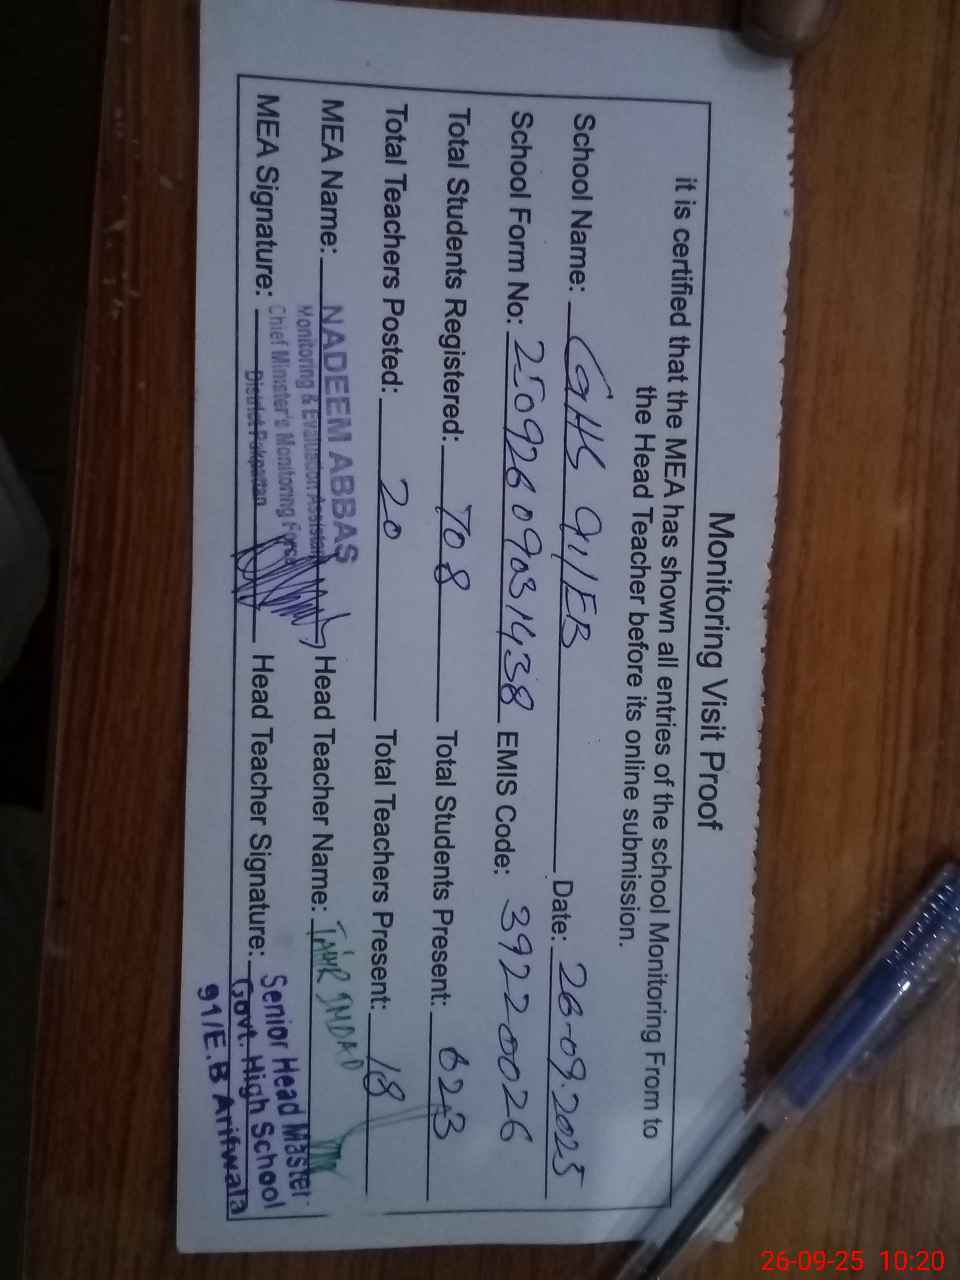 Monitoring Visit Proof
it is certified that the MEA has shown all entries of the school Monitoring From to
the Head Teacher before its online submission.
School Name: GHS 91/EB Date: 26-09-2025
School Form No: 25092609031438 EMIS Code: 39220026
Total Students Registered: 708 Total Students Present: 623
Total Teachers Posted: 20 Total Teachers Present: 18
MEA Name: NADEEM ABBAS Head Teacher Name: TAHIR IMDAD
Monitoring & Evaluation Assistant
Chief Minister's Monitoring Force
MEA Signature: District Pakpattan Head Teacher Signature:
Senior Head Master
Govt. High School
91/E.B Arifwala
26-09-25 10:20